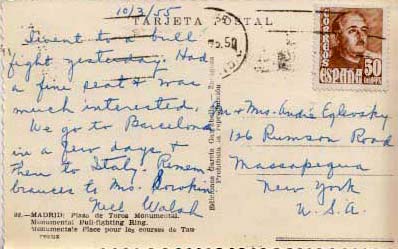 10/3/55
TARJETA POSTAL
I went to a bull
fight yesterday. Had
a fine seat & was
much interested.
We go to Barcelona
in a few days &
then to Italy. Remem-
brances to Mrs.
Neil Walsh
MADRID: Plaza de Toros Monumental.
Monumental Bull-fighting Ring.
Monumentale Place pour les courses de Tau-
reaux
Prohibida la reproducción
CORREOS
ESPAÑA 50
CENTS
Mr & Mrs. André Eglevsky
126 Rumson Road
Massapequa
New York
U.S.A.